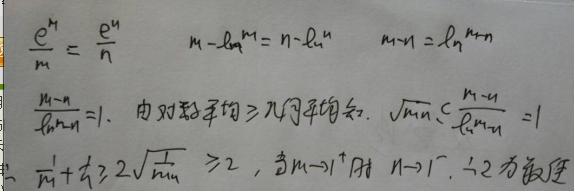 e^m/m = e^n/n m-ln^m = n-ln^n m-n = ln^{m-n}
m-n/ln^{m-n} = 1. 由对数平均≥几何平均知. √mn ≤ m-n/ln^{m-n} = 1
∴ 1/m + 1/n ≥ 2√1/mn ≥ 2, 当m→1^+时 n→1^-. ∴2为最佳